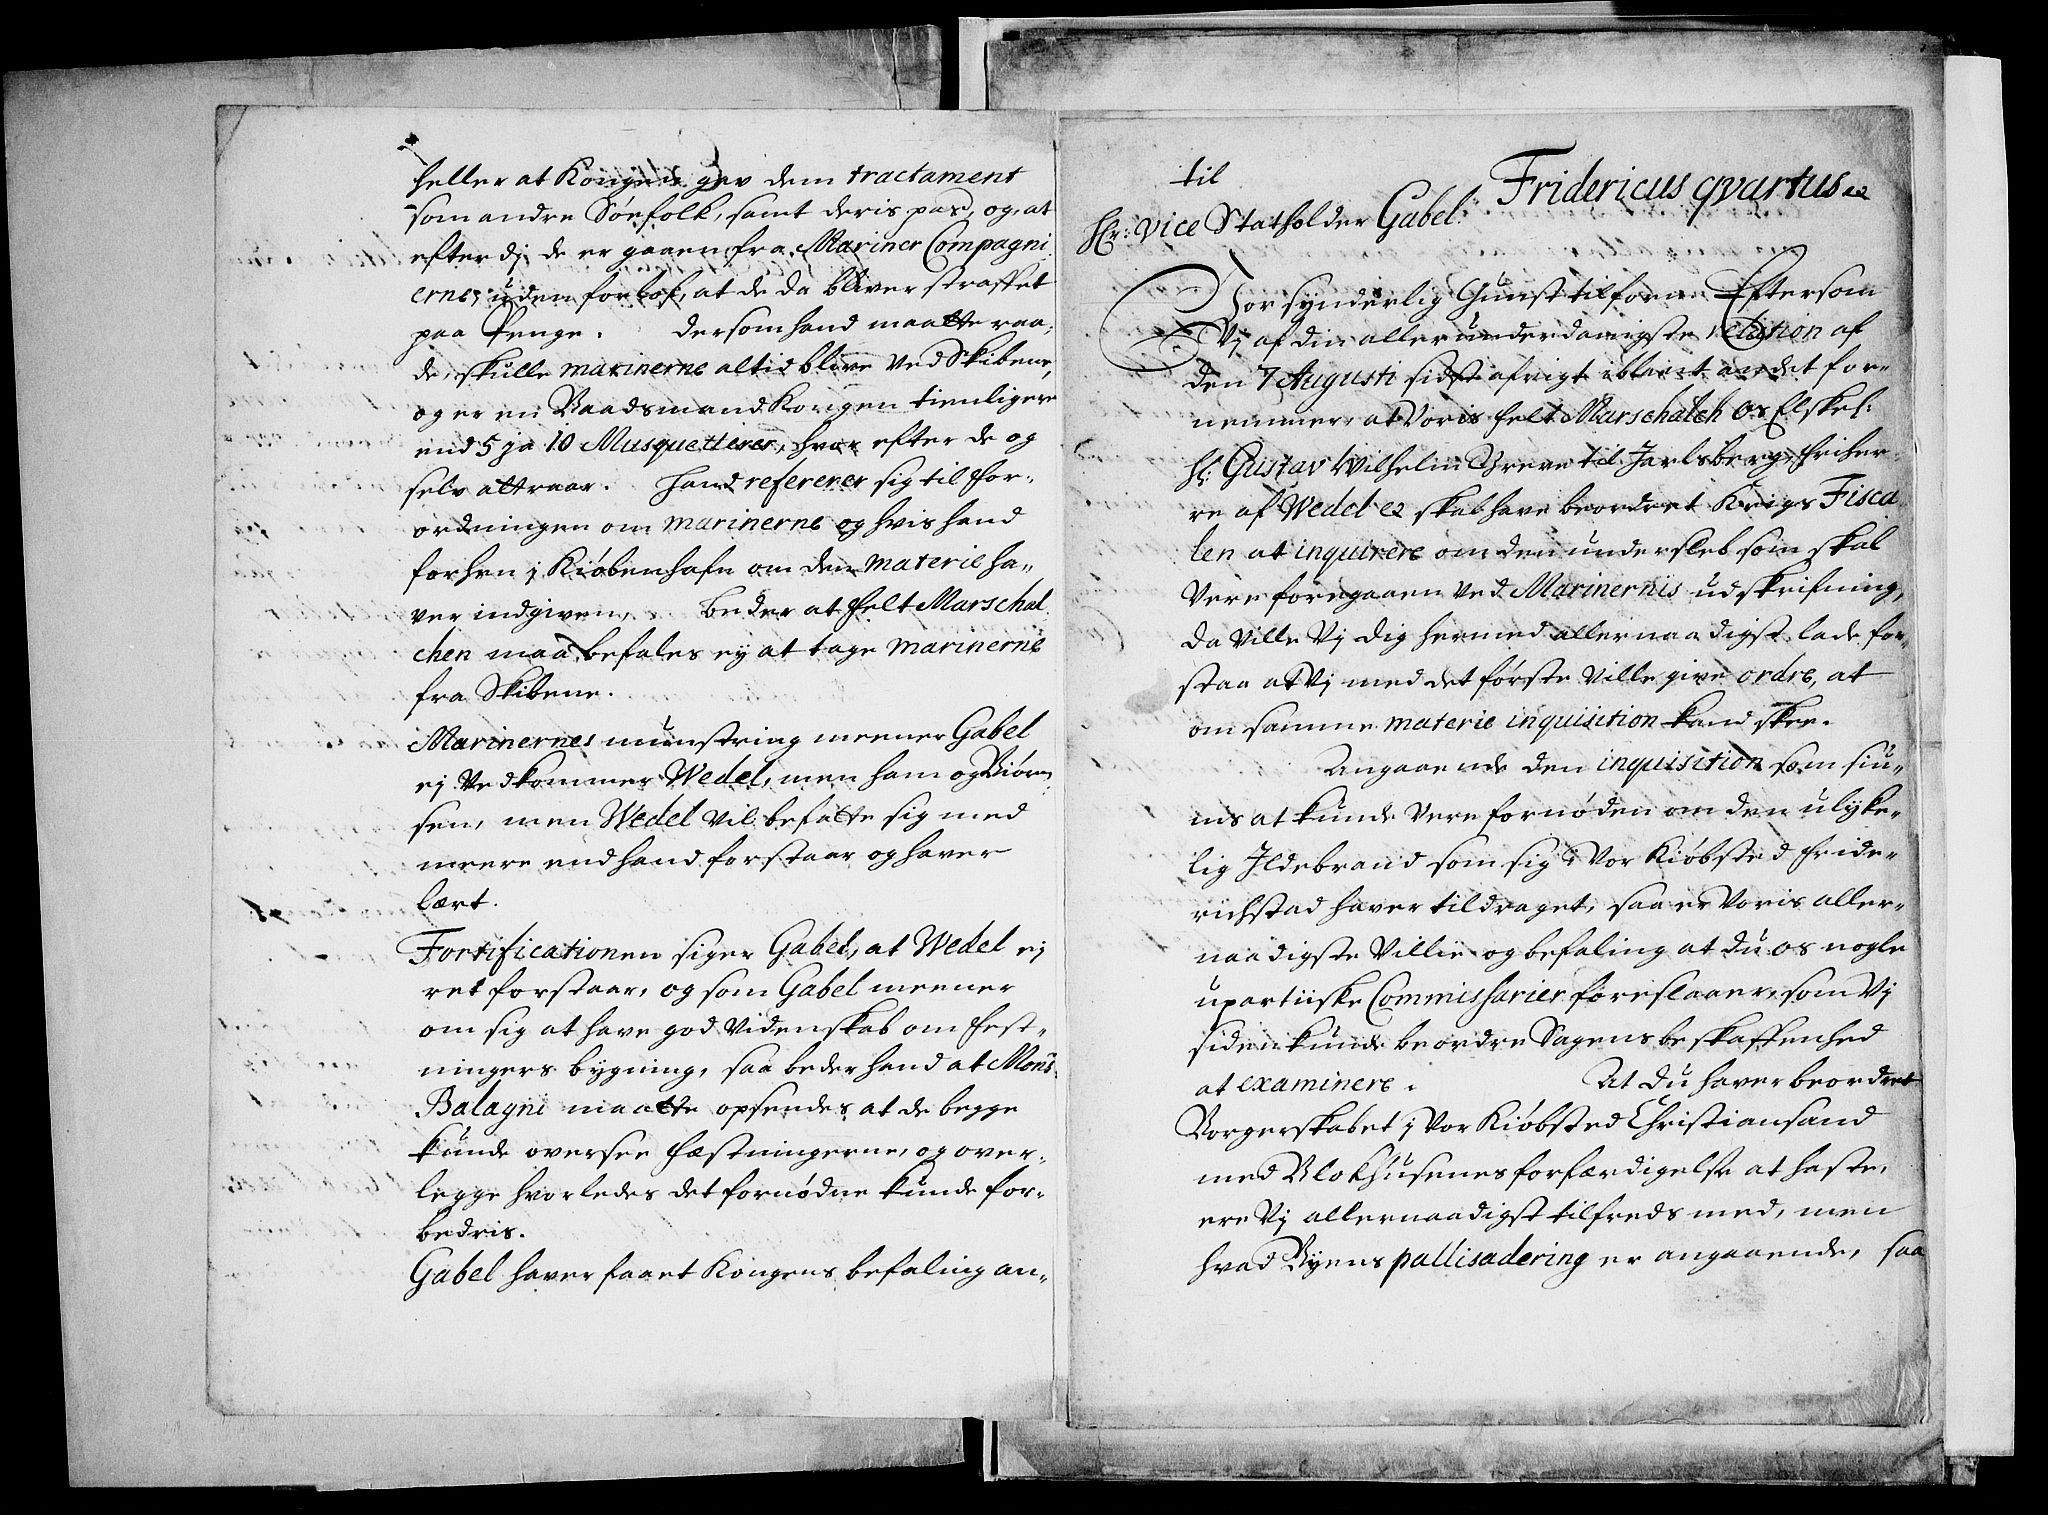 heller at Kongen gav dem tractament
som andre Söefolk, samt deris pas, og, at
efterdj de er gaaen fra Mariner Compagni
erne, uden forlof, at de da bliver straffet
paa Penge. Dersom hand maatte raa,
de, skulle marinerne altid blive ved Skibene,
og er en Baadsmand Kongen tienligere
end 5 ja 10 Musquetterer, hvor efter de og
selv attraar. Hand referener sig til for-
ordningen om marinerne og hvis hand
forhen j Kiøbenhafn om den materie ha-
ver indgiven, beder at Felt Marschal
chen maa befales ey at tage marinerne
fra Skibene.
Marinernes munstring meener Gabel
ej vedkommer Wedel, men ham og Biörn
sen, men Wedel vil befatte sig med
meere end hand forstaar og haver
lært.
Fortificationen siger Gabel, at Wedel ej
ret forstaar, og som Gabel meener
om sig at have god Videnskab om Fest-
ningers bygning, saa beder hand at Mons.
Balagni maatte opsendes at de begge
kunde oversee Fæstningerne, og over-
legge hvorledes det fornødne kunde for-
bedris.
Gabel haver faaet Kongens befaling an-
til
Fridericus qvartus
Hr: Vice Statholder Gabel.
Vor synderlig Gunst tilforn. Eftersom
Vj af din allerunderdanigste relation af
den 7 Augusti sidst afvigt iblant andet for-
nemmer, at Voris Felt Marschalch Os Elskel:
Hr. Gustav Wilhelm Greve til Jarlsberg, Friher-
re af Wedel skal have beordret Krigs Fisca
len at inquirere om den undersleb som skal
Vere foregaaen ved Marinernis udskrifning,
da ville Vj dig hermed allernaadigst lade for-
staa at Vj med det første ville give ordre, at
om samme materie inquisition kand skee.
Angaaende den inquisition som siu-
nis at kunde vere fornøden om den ulyke-
lig Ildebrand som sig i Vor Kiøbsted Fride-
richstad haver tildraget, saa er Voris aller-
naadigste Villie og befaling at du os nogle
upartiiske Commissarier foreslaaer, som Vj
siden kunde beordre Sagens beskaffenhed
at examinere. At du haver beordret
Borgerskabet j Vor Kiøbsted Christiansand
med Blokhusenes forfærdigelse at haste,
ere Vj allernaadigst tilfreds med, men
hvad Byens pallisadering er angaaende, saa